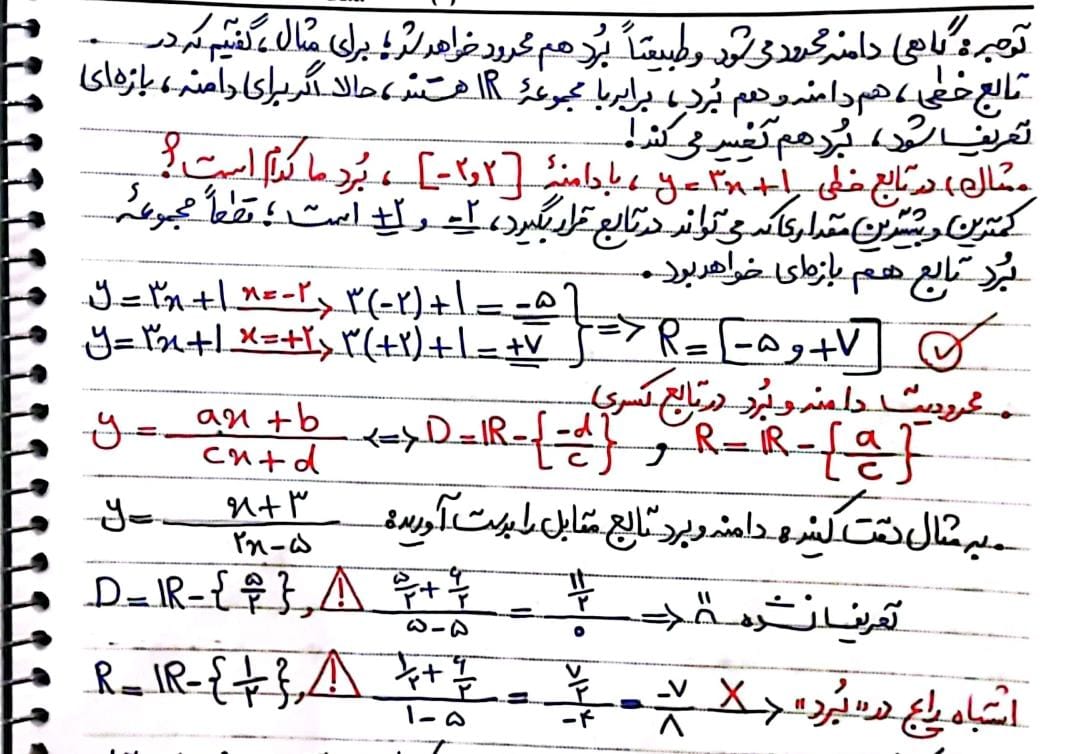 توجه: گاهی دامنه محدود می‌شود و طبیعتاً بُرد هم محدود خواهد شد؛ برای مثال، گفتیم که در
تابع خطی، هم دامنه و هم بُرد، برابر با مجموعهٔ IR هستند، حالا اگر برای دامنه، بازه‌ای
تعریف شود، بُرد هم تغییر می‌کند!
مثال، در تابع خطی y = ۳x + ۱، با دامنهٔ [-۲ و ۲]، بُرد ما کدام است؟
کمترین و بیشترین مقداری که می‌تواند در تابع قرار بگیرد، -۲ و +۲ است؛ قطعاً مجموعهٔ
بُرد تابع هم بازه‌ای خواهد بود.
y = ۳x + ۱ x = -۲ → ۳(-۲) + ۱ = -۵
y = ۳x + ۱ x = +۲ → ۳(+۲) + ۱ = +۷ } => R = [-۵ و +۷]
. محدودیت دامنه و بُرد در تابع کسری
y = (ax + b)/(cx + d) <=> D = IR - {-d/c} و R = IR - {a/c}
. به مثال دقت کنید: دامنه و برد تابع مقابل را بدست آورید: y = (x + ۳)/(۲x - ۵)
D = IR - {۵/۲}, ⚠ (۵/۲ + ۶/۲)/(۵ - ۵) = (۱۱/۲)/۰ => تعریف نشده
R = IR - {۱/۲}, ⚠ (۱/۲ + ۶/۲)/(۱ - ۵) = (۷/۲)/-۴ = -۷/۸ X → اشتباه رایج در «بُرد»